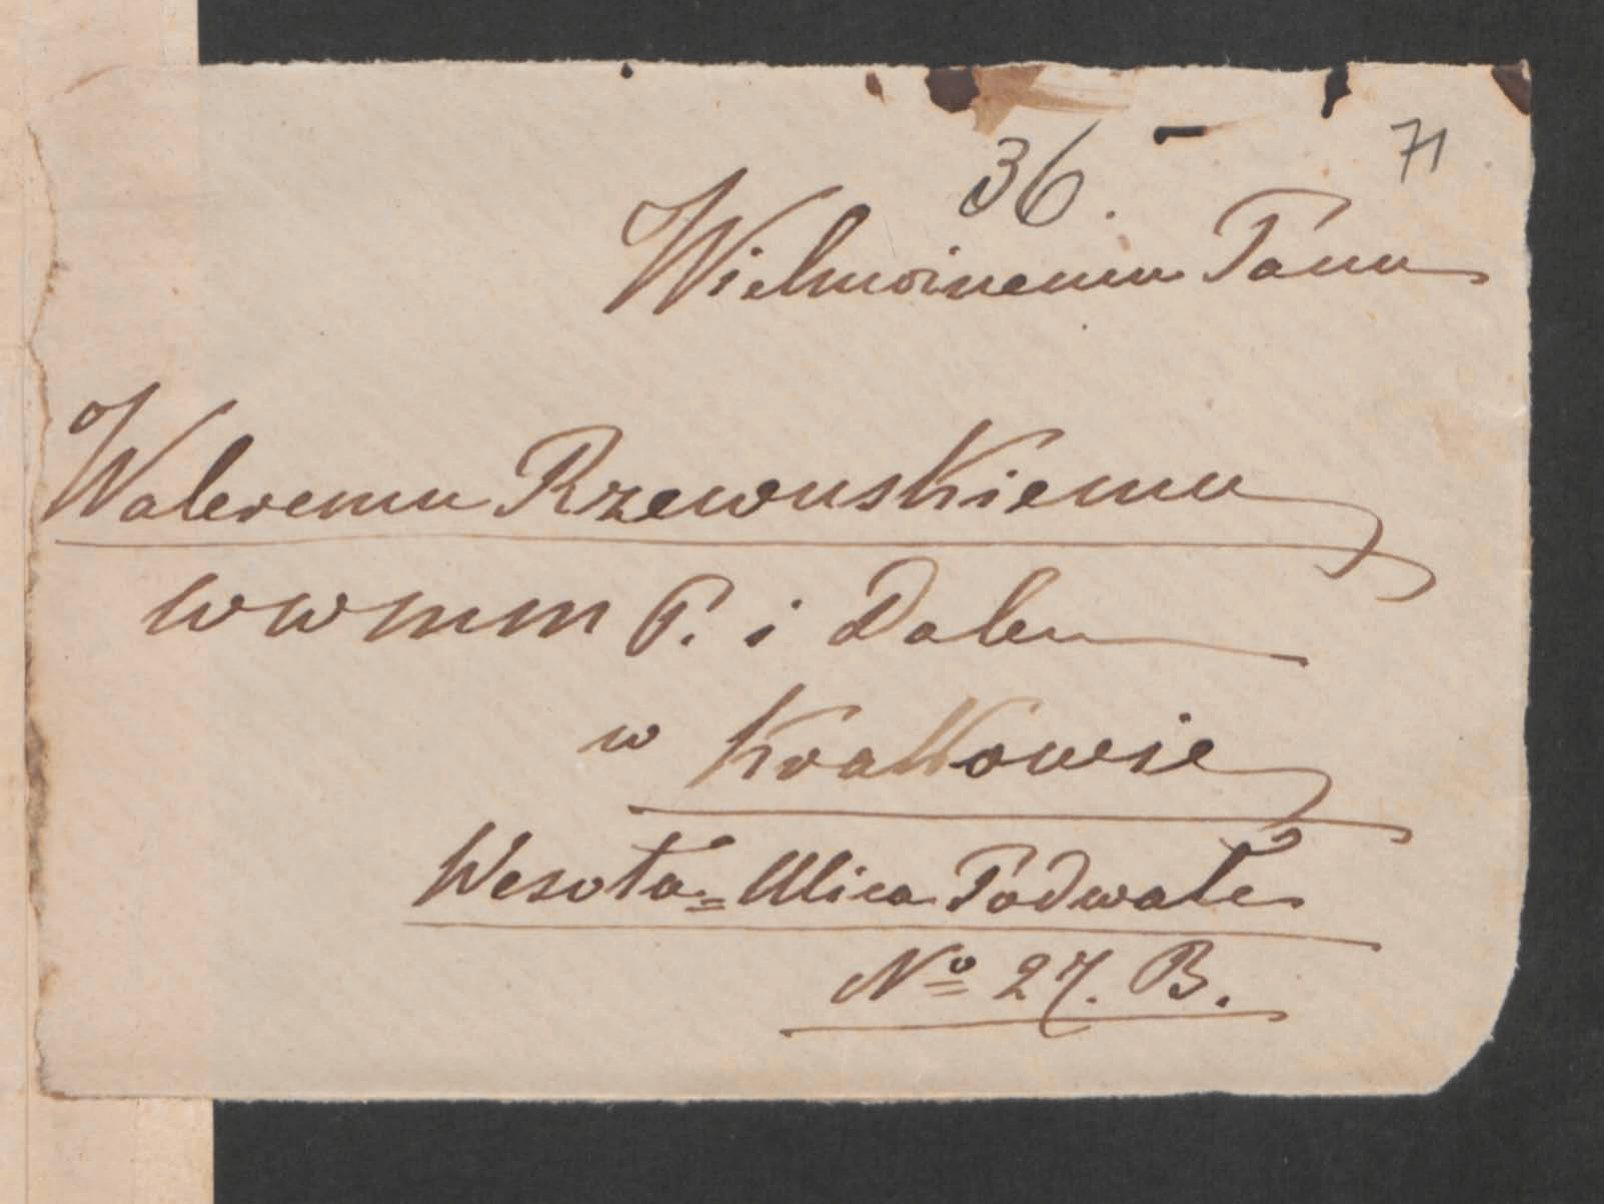 36. 71
Wielmoinemu Panu
Waleremu Rzewuskiemu
wwmm P. i Dobru
w Krakowie
Wesoła = Ulica Podwale
No 27. B.